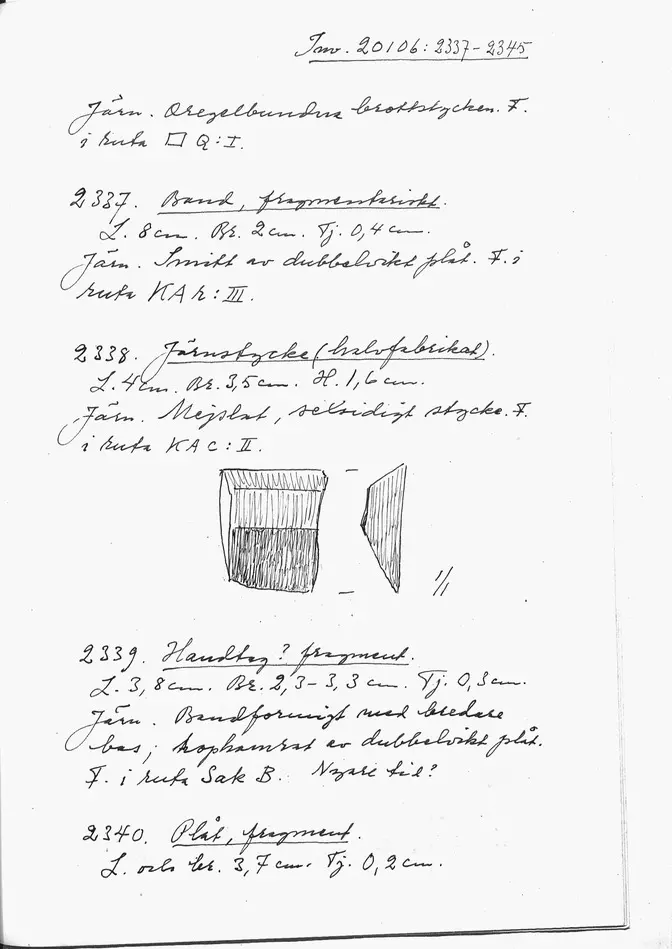 Inv. 20106: 2337-2345
Järn. Oregelbundna brottstycken. F.
i ruta □ Q:I.
2337. Band, fragmentariskt.
L. 8cm. Br. 2cm. Tj. 0,4cm.
Järn. Smitt av dubbelvikt plåt. F. i
ruta KA r:III.
2338. Järnstycke (halvfabrikat).
L. 4cm. Br. 3,5cm. H. 1,6cm.
Järn. Mejslat, sexsidigt stycke. F.
i ruta KA c:II.
1/1
2339. Handtag? fragment.
L. 3,8cm. Br. 2,3-3,3cm. Tj. 0,3cm.
Järn. Bandformigt med bredare
bas; hophamrat av dubbelvikt plåt.
F. i ruta Sak B. Nyare tid?
2340. Plåt, fragment.
L. och br. 3,7cm. Tj. 0,2cm.